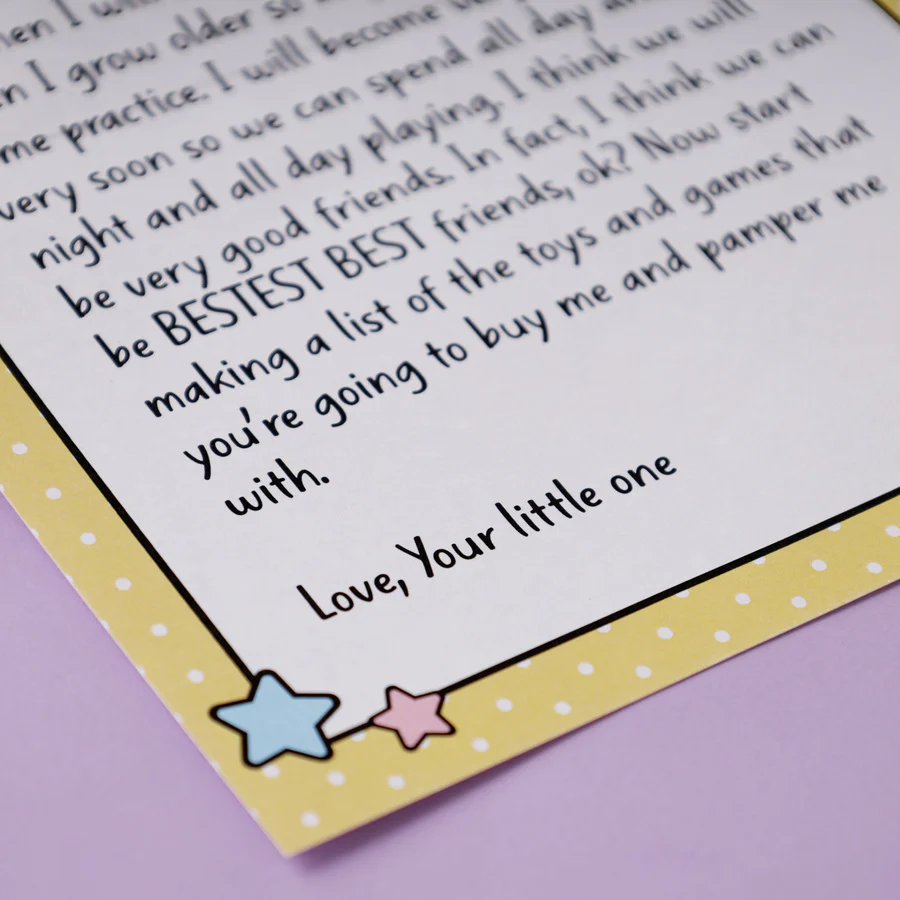 hen I will
n I grow older so
me practice. I will become
very soon so we can spend all day
night and all day playing. I think we will
be very good friends. In fact, I think we can
be BESTEST BEST friends, ok? Now start
making a list of the toys and games that
you're going to buy me and pamper me
with.
Love, Your little one